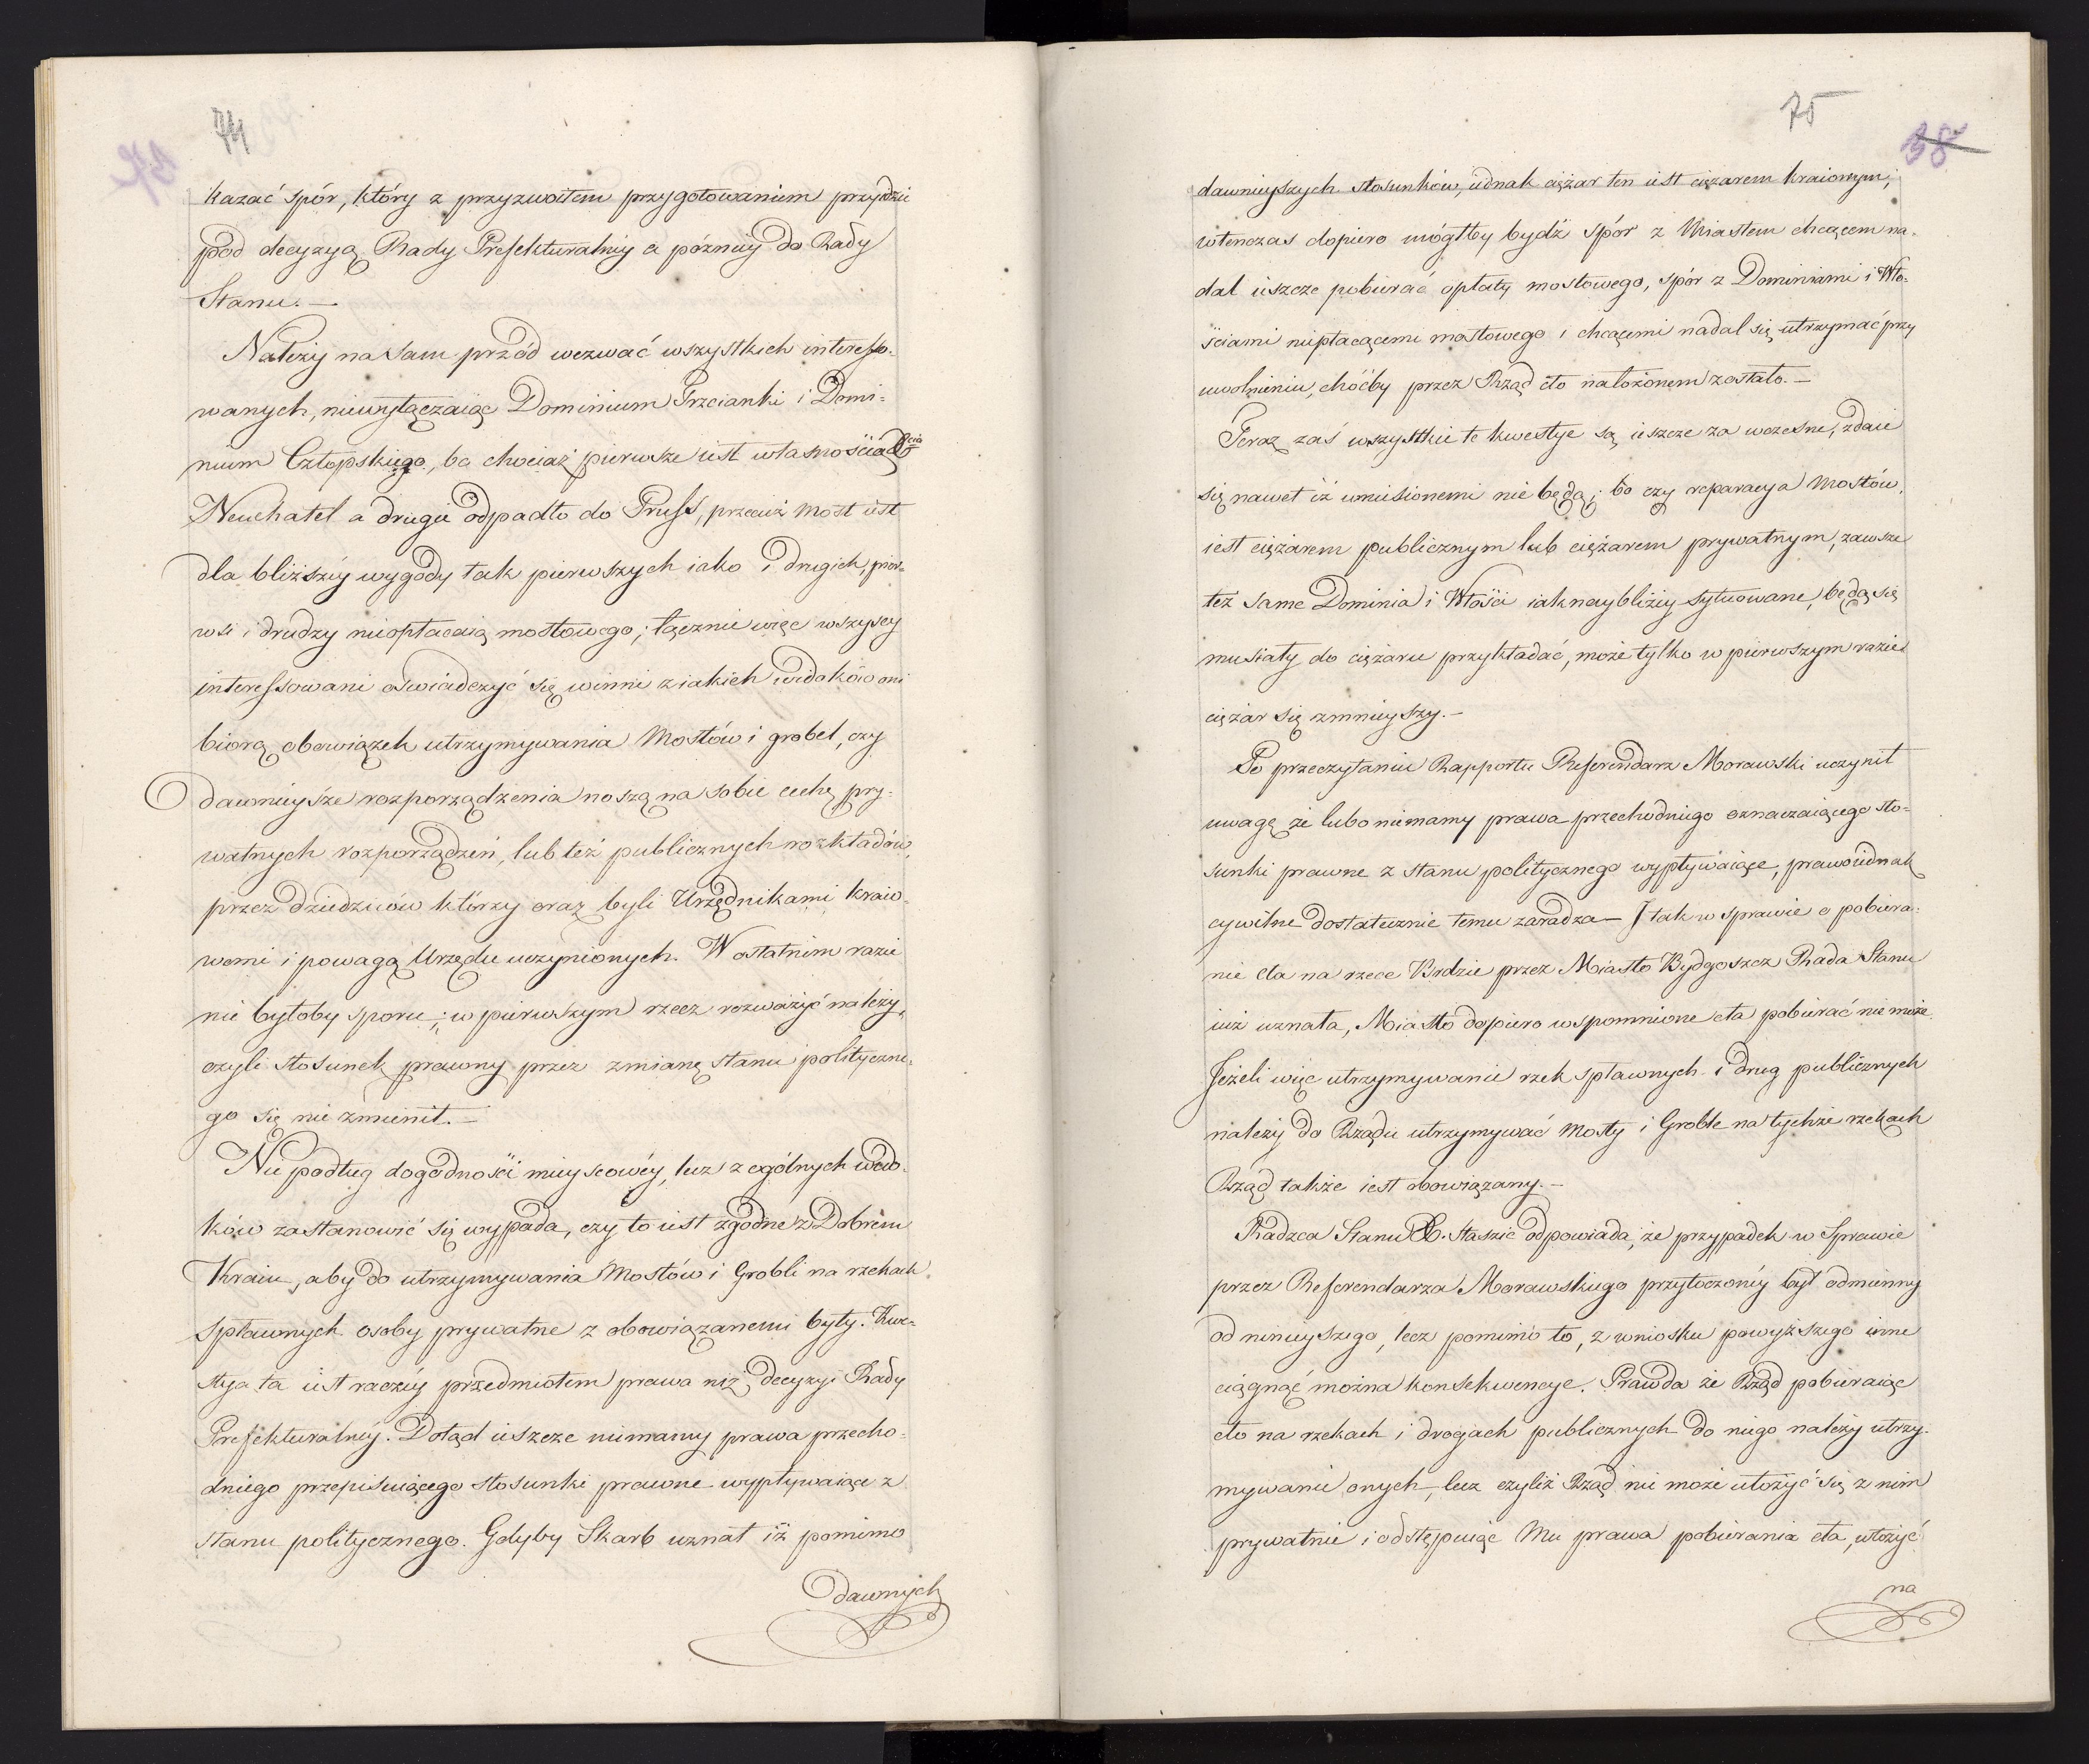 74
kazać spór, który z przyzwoitem przygotowaniem przyidzie
pod decyzyą Rady Prefekturalnéy a późniéy do Rady
Stanu. —
Należy na sam przód wezwać wszystkich interesso-
wanych, niewyłączaiąc Dominium Trzcianki i Domi=
nium Człopskiego, bo chociaż pierwsze iest własnością Xcia
Neuchatel a drugie odpadło do Pruss, przecież most iest
dla bliższéy wygody tak pierwszych iako i drugich, pier-
wsi i drudzy nieopłacaią mostowego; łącznie więc wszyscy
interessowani oświadczyć się winni z iakich widoków oni
biorą obowiązek utrzymywania Mostów i grobel, czy
dawnieysze rozporządzenia noszą na sobie cechę pry=
watnych rozporządzeń, lub też publicznych rozkładów,
przez dziedziców którzy oraz byli Urzędnikami kraio-
wemi i powagą Urzędu uczynionych. W ostatnim razie
nie byłoby sporu; w pierwszym rzecz rozważyć należy,
czyli stosunek prawny przez zmianę stanu polityczne-
go się nie zmienił. —
Nie podług dogodności mieyscowéy, lecz z ogólnych wido-
ków zastanowić się wypada, czy to iest zgodne z Dobrem
Kraiu, aby do utrzymywania Mostów i Grobli na rzekach
spławnych osoby prywatne z obowiązanemi były. Kwe-
stya ta iest raczéy przedmiotem prawa niż decyzyi Rady
Prefekturalnéy. Dotąd ieszcze niemamy prawa przecho-
dniego przepisuiącego stosunki prawne wypływaiące z
stanu politycznego. Gdyby Skarb uznał iż pomimo
dawnych
75
38
dawnieyszych stosunków, iednak ciężar ten iest ciężarem kraiowym,
wtenczas dopiero mógłby bydź spór z Miastem chcącem na-
dal ieszcze pobierać opłaty mostowego, spór z Dominiami i Wło-
ściami niepłacącemi mostowego i chcącemi nadal się utrzymać przy
uwolnieniu, choćby przez Rząd cło nałożonem zostało. —
Teraz zaś wszystkie te kwestye są ieszcze za wczesne, zdaie
się nawet iż umiesionemi nie będą; bo czy reparacya Mostów,
iest ciężarem publicznym lub ciężarem prywatnym, zawsze
też same Dominia i Włości iak naybliżéy sytuowane, będą się
musiały do ciężaru przykładać, może tylko w pierwszym razie
ciężar się zmnieyszy. —
Po przeczytaniu Rapportu Referendarz Morawski uczynił
uwagę że lubo niemamy prawa przechodniego oznaczaiącego sto=
sunki prawne z stanu politycznego wypływaiące, prawo iednak
cywilne dostatecznie temu zaradza — J tak w sprawie o pobiera-
nie cła na rzece Brdzie przez Miasto Bydgoszcz Rada Stanu
iuż uznała, Miasto dopiero wspomnione cła pobierać nie może.
Jeżeli więc utrzymywanie rzek spławnych i dróg publicznych
należy do Rządu utrzymywać Mosty i Groble na tychże rzekach
Rząd także iest obowiązany. —
Radzca Stanu X. Staszic odpowiada, że przypadek w Sprawie
przez Referendarza Morawskiego przytoczonéy był odmienny
od ninieyszego, lecz pomimo to, z wniosku powyższego inne
ciągnąć można konsekwencye. Prawda że Rząd pobieraiąc
cło na rzekach i drogach publicznych do niego należy utrzy-
mywanie onych, lecz czyliż Rząd nie może ułożyć się z nim
prywatnie i odstępuiąc Mu prawa pobierania cła, włożyć
na